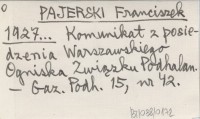 PAJERSKI Franciszek
1927... Komunikat z posie-
dzenia Warszawskiego
Ogniska Związku Podhalan.
— Gaz. Podh. 15, nr 42.